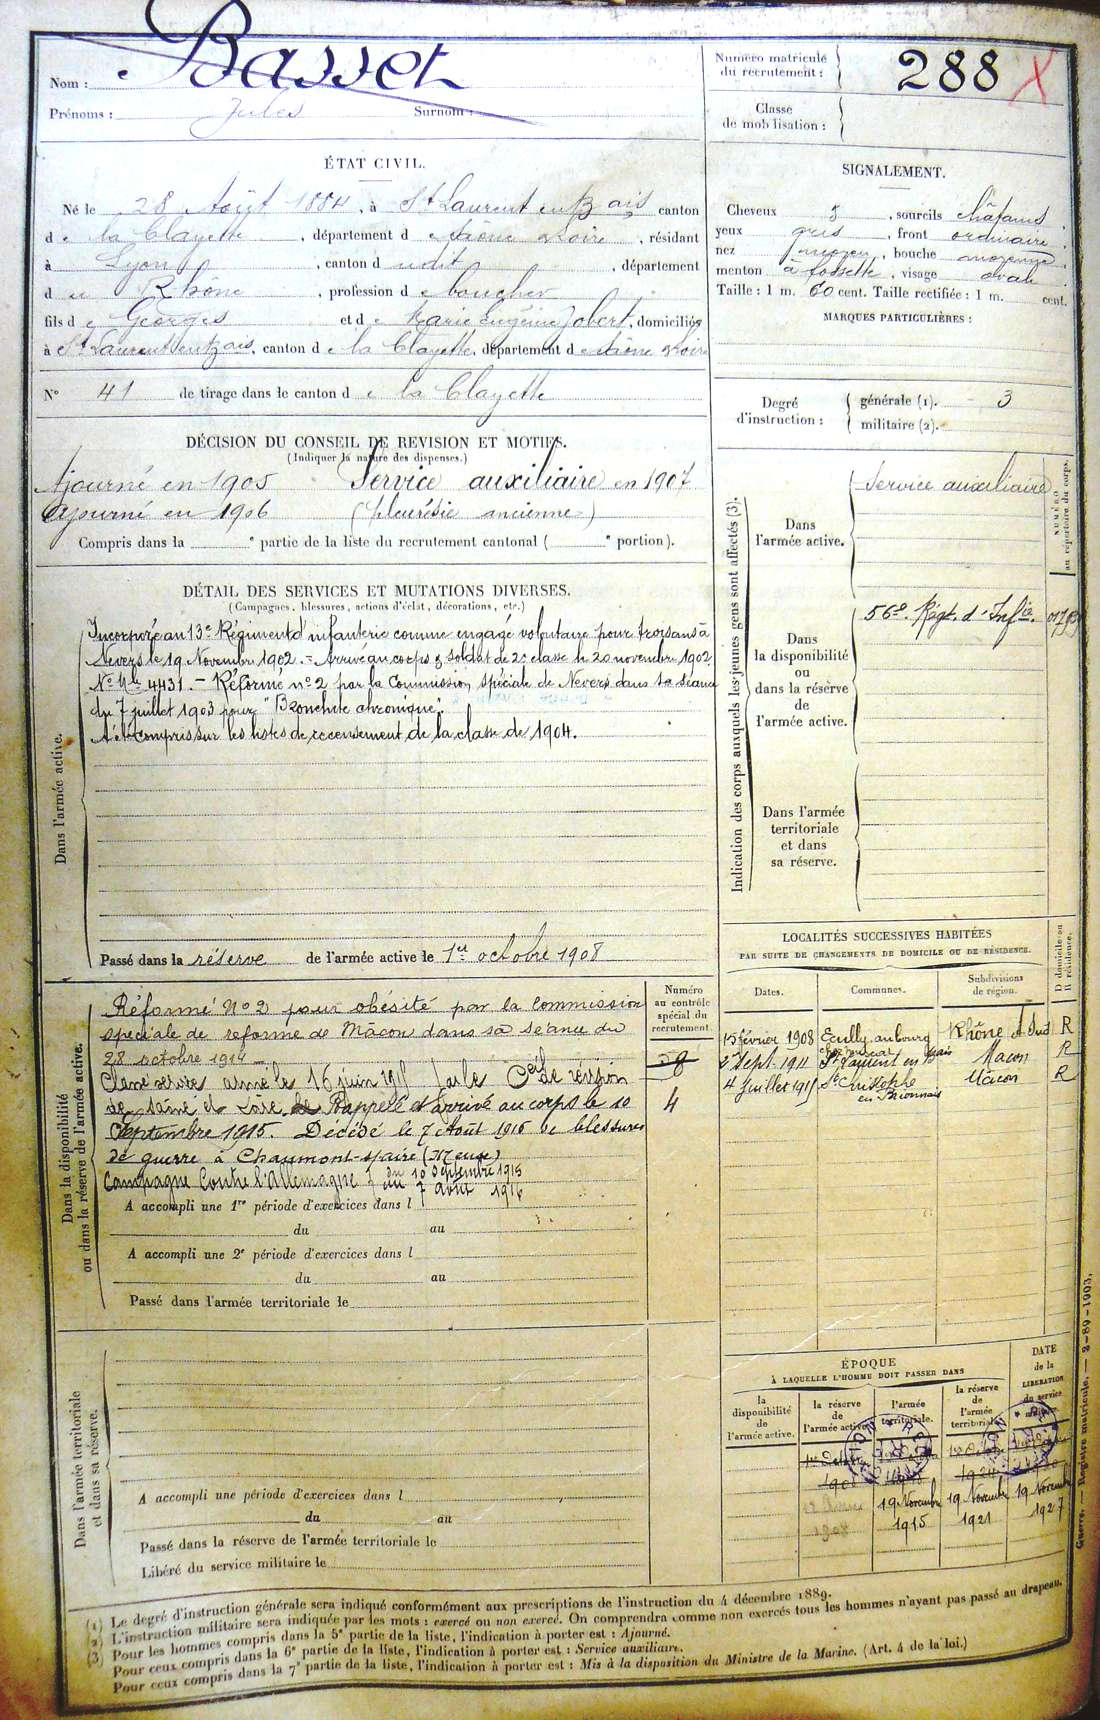 Nom : Basset
Prénoms : Jules Surnom :
Numéro matricule
du recrutement : 288 X
Classe
de mobilisation :
ÉTAT CIVIL.
Né le 28 Août 1884, à St Laurent en B ais canton
d e la Clayette, département d e Saône & Loire, résidant
à Lyon, canton d udit, département
d u Rhône, profession d e boucher
fils d e Georges et d e Marie Eugénie Jobert, domiciliés
à St Laurent en B ais, canton d e la Clayette, département d e Saône & Loire
N° 41 de tirage dans le canton d e la Clayette
SIGNALEMENT.
Cheveux , sourcils châtains
yeux gris, front ordinaire
nez moyen, bouche moyenne
menton à fossette, visage ovale
Taille : 1 m. 60 cent. Taille rectifiée : 1 m. cent.
MARQUES PARTICULIÈRES :
Degré
d'instruction :
générale (1). 3
militaire (2).
DÉCISION DU CONSEIL DE REVISION ET MOTIFS.
(Indiquer la nature des dispenses.)
Ajourné en 1905 Service auxiliaire en 1907
Ajourné en 1906 (pleurésie ancienne)
Compris dans la e partie de la liste du recrutement cantonal ( e portion).
DÉTAIL DES SERVICES ET MUTATIONS DIVERSES.
(Campagnes, blessures, actions d'éclat, décorations, etc.)
Dans l'armée active.
Incorporé au 13e Régiment d'infanterie comme engagé volontaire pour trois ans à
Nevers le 19 Novembre 1902. = Arrivé au corps & soldat de 2e classe le 20 novembre 1902
No Mle 4431. — Réformé no 2 par la Commission spéciale de Nevers dans sa séance
du 7 juillet 1903 pour "Bronchite chronique".
A été compris sur les listes de recensement de la classe de 1904.
Passé dans la réserve de l'armée active le 1er octobre 1908
Indication des corps auxquels les jeunes gens sont affectés (3).
NUMÉRO
au répertoire du corps.
Dans
l'armée active.
Service auxiliaire
Dans
la disponibilité
ou
dans la réserve
de
l'armée active.
56e Régt. d'Infie.
Dans l'armée
territoriale
et dans
sa réserve.
LOCALITÉS SUCCESSIVES HABITÉES
PAR SUITE DE CHANGEMENTS DE DOMICILE OU DE RÉSIDENCE.
D domicile ou
R résidence.
Dates. Communes. Subdivisions
de région.
15 février 1908 Ecully au bourg Rhône d Sud R
2 Sept. 1911 St Laurent en B nais Macon R
4 Juillet 1915 St Christophe
en Brionnais Mâcon R
Dans la disponibilité
ou dans la réserve de l'armée active.
Numéro
au contrôle
spécial du
recrutement.
4
Réformé No 2 pour obésité par la Commission
spéciale de reforme de Mâcon dans sa séance du
28 octobre 1914
Classé service armé le 16 juin 1915 par le Ceil de révision
de Saône et Loire Rappelé et arrivé au corps le 10
Septembre 1915. Décédé le 7 Août 1916 de blessures
de guerre à Chaumont-s/aire (Meuse)
Campagne Contre l'Allemagne } du 10 Septembre 1915
au 7 août 1916
A accompli une 1re période d'exercices dans l
du au
A accompli une 2e période d'exercices dans l
du au
Passé dans l'armée territoriale le
Dans l'armée territoriale
et dans sa réserve.
A accompli une période d'exercices dans l
du au
Passé dans la réserve de l'armée territoriale le
Libéré du service militaire le
ÉPOQUE
À LAQUELLE L'HOMME DOIT PASSER DANS
DATE
de la
LIBÉRATION
du service
la
disponibilité
de
l'armée active.
la réserve
de
l'armée active.
l'armée
territoriale.
la réserve
de
l'armée
territoriale.
19 Novembre 19 Novembre 19 Novembre
1915 1921 1927
Guerre. — Registre matricule. — 2-89-1903.
(1) Le degré d'instruction générale sera indiqué conformément aux prescriptions de l'instruction du 4 décembre 1889.
(2) L'instruction militaire sera indiquée par les mots : exercé ou non exercé. On comprendra comme non exercés tous les hommes n'ayant pas passé au drapeau.
(3) Pour les hommes compris dans la 5e partie de la liste, l'indication à porter est : Ajourné.
Pour ceux compris dans la 6e partie de la liste, l'indication à porter est : Service auxiliaire.
Pour ceux compris dans la 7e partie de la liste, l'indication à porter est : Mis à la disposition du Ministre de la Marine. (Art. 4 de la loi.)